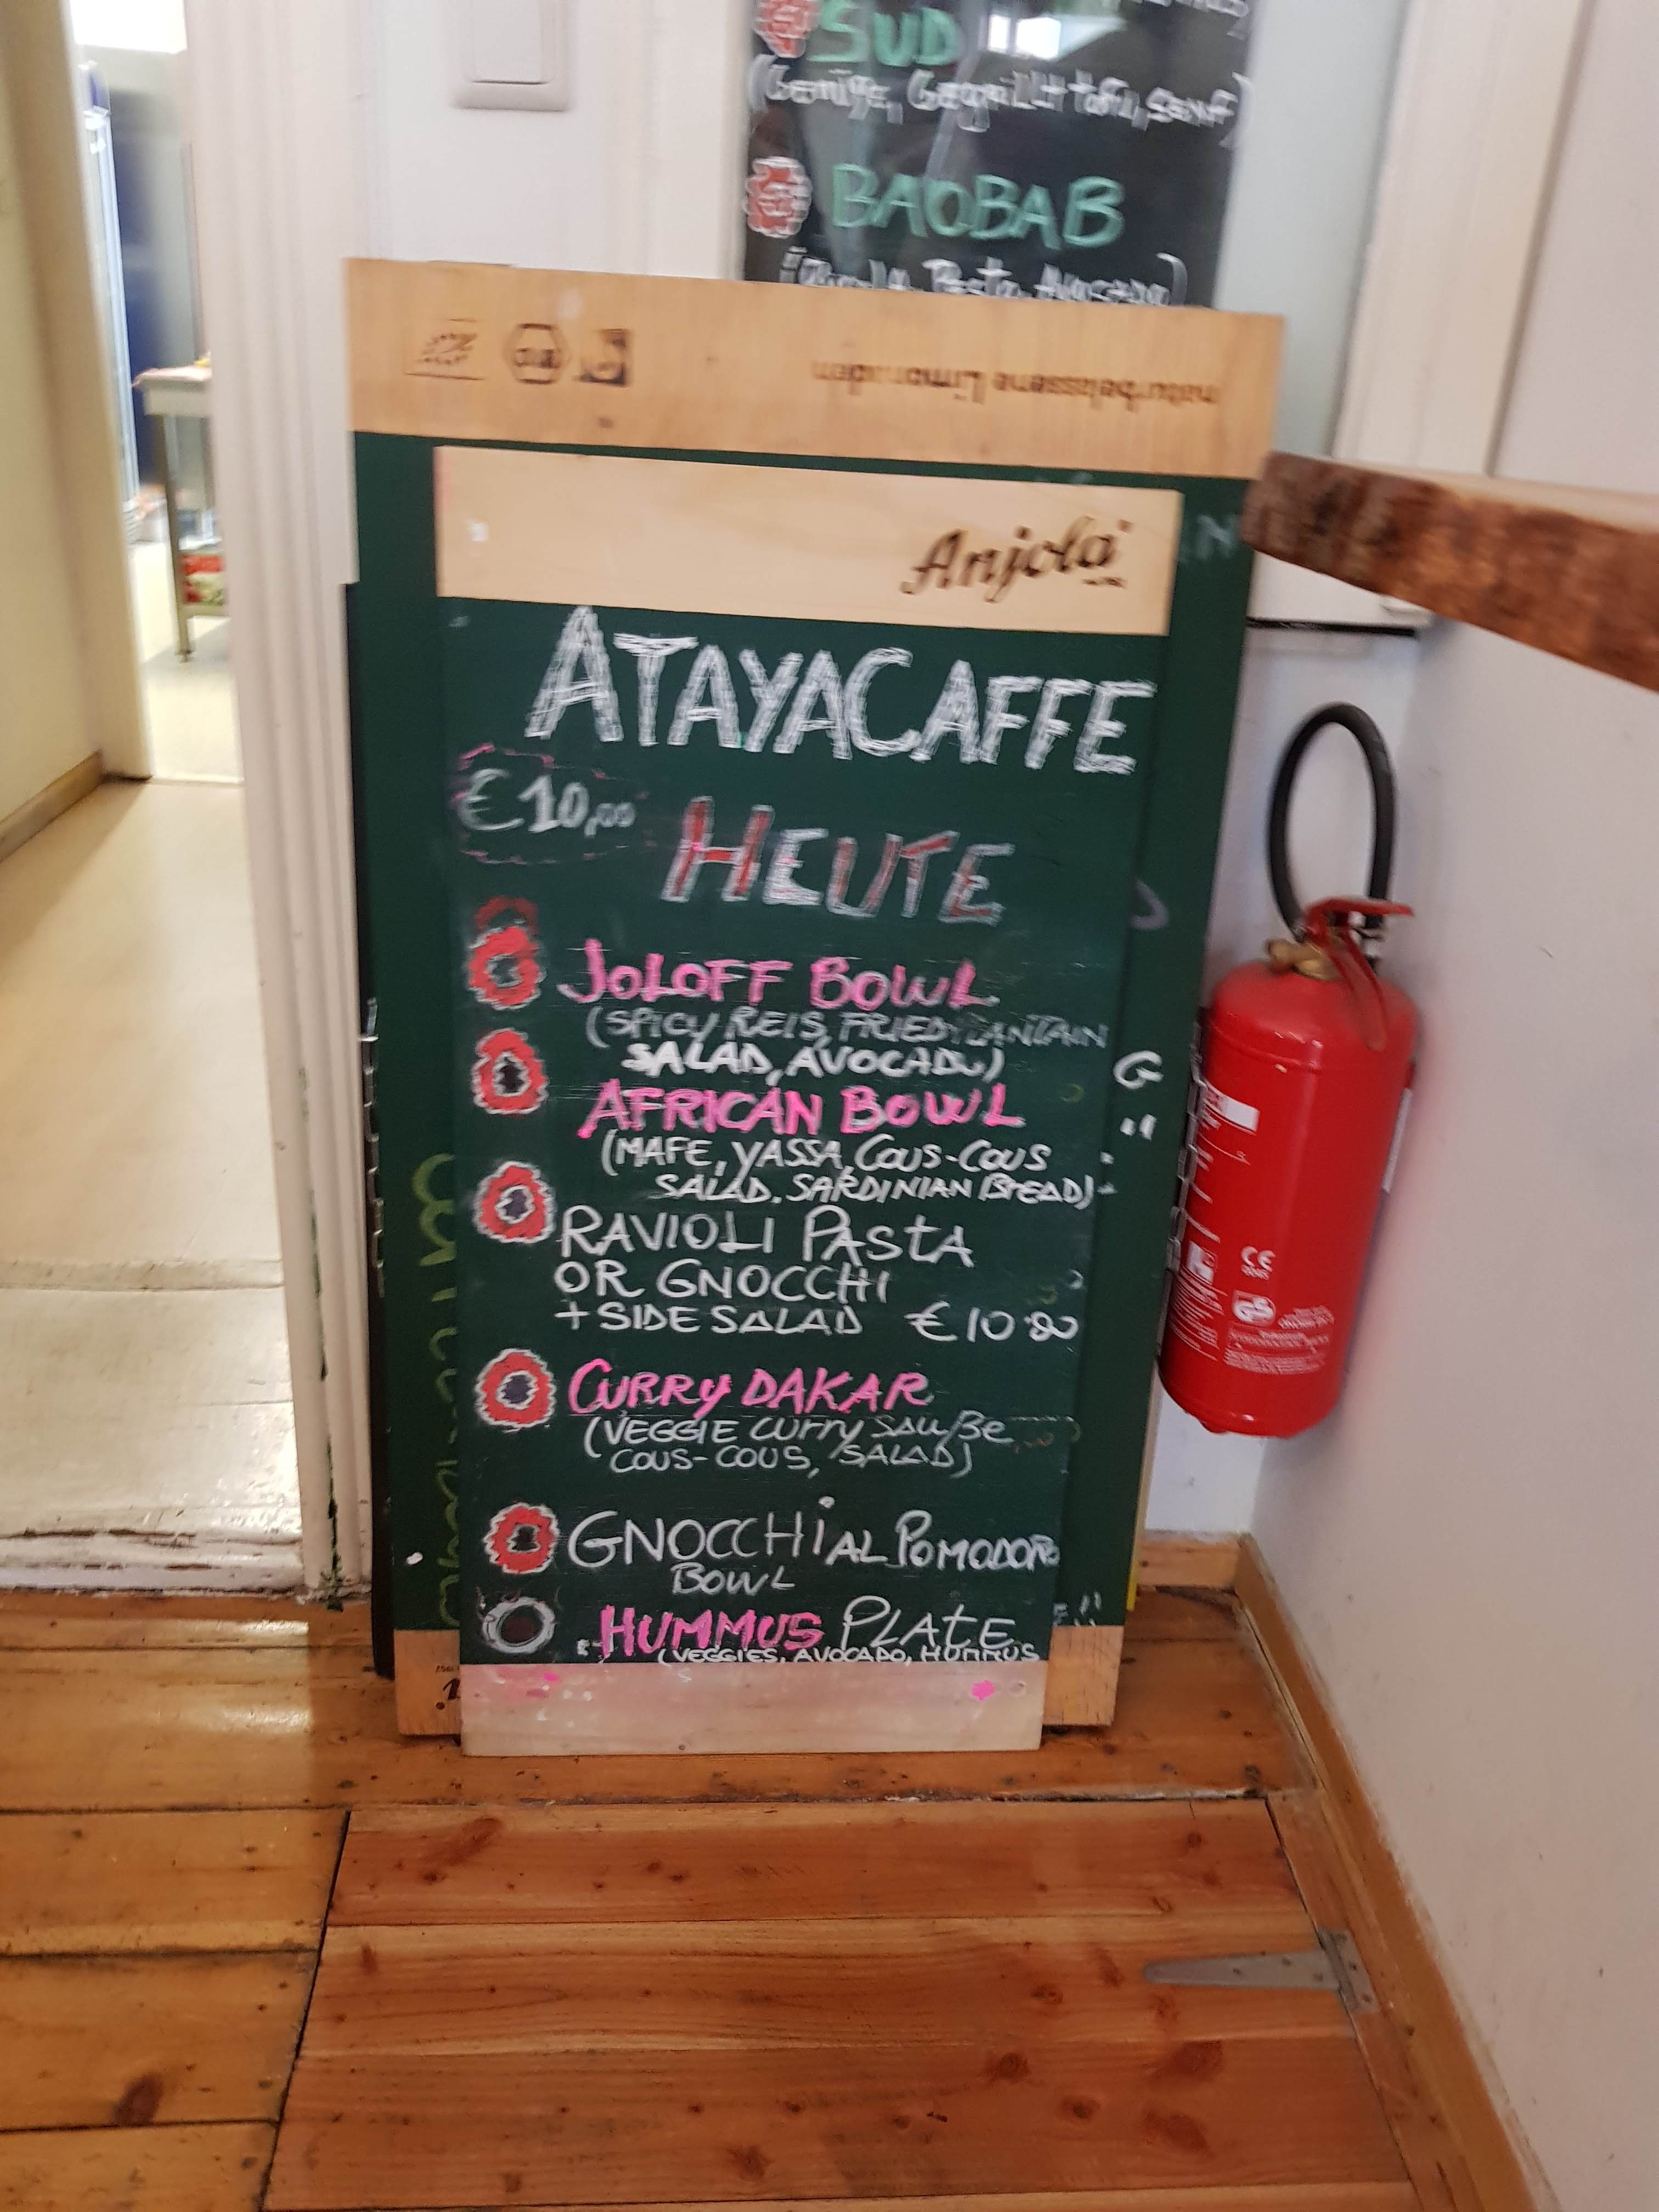 SUD
(Gemüse, Gegrillt tofu, senf)
BAOBAB
Pesto, Avocado)
naturbelassene Limonaden
Anjola
ATAYACAFFE
€10,00
HEUTE
JOLOFF BOWL
(SPICY REIS, FRIED PLANTAIN
SALAD, AVOCADO)
AFRICAN BOWL
(MAFE, YASSA, COUS-COUS
SALAD, SARDINIAN BREAD)
RAVIOLI PASTA
OR GNOCCHI
+ SIDE SALAD €10.80
CURRY DAKAR
(VEGGIE CURRY SAUßE
COUS-COUS, SALAD)
GNOCCHI AL POMODORO
BOWL
HUMMUS PLATE
(VEGGIES, AVOCADO, HUMMUS
CE
GS